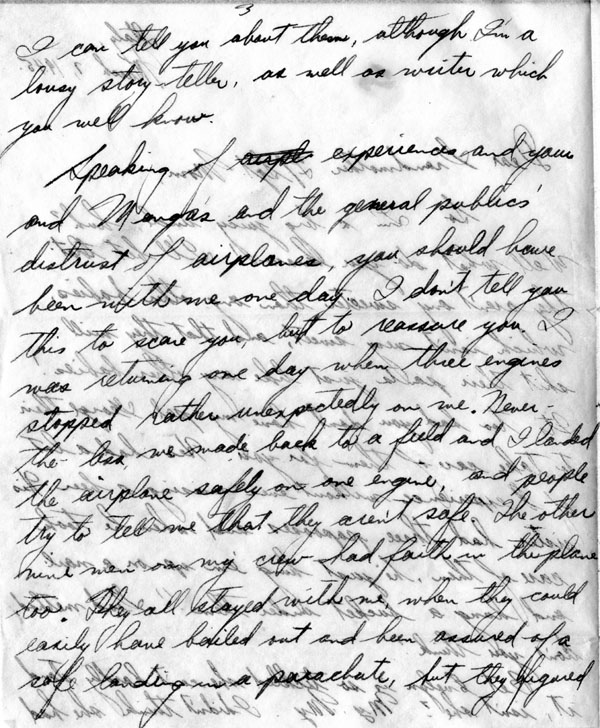 3
I can tell you about them, although I'm a
lousy story-teller, as well as writer which
you well know.
Speaking of experiences and your
and Mangas and the general publics'
distrust of airplanes, you should have
been with me one day. I don't tell you
this to scare you, but to reassure you. I
was returning one day when three engines
stopped rather unexpectedly on me. Never-
the-less we made back to a field and I landed
the airplane safely on one engine, and people
try to tell me that they aren't safe. The other
nine men on my crew had faith in the plane
too. They all stayed with me, when they could
easily have bailed out and been assured of a
safe landing in a parachute, but they figured